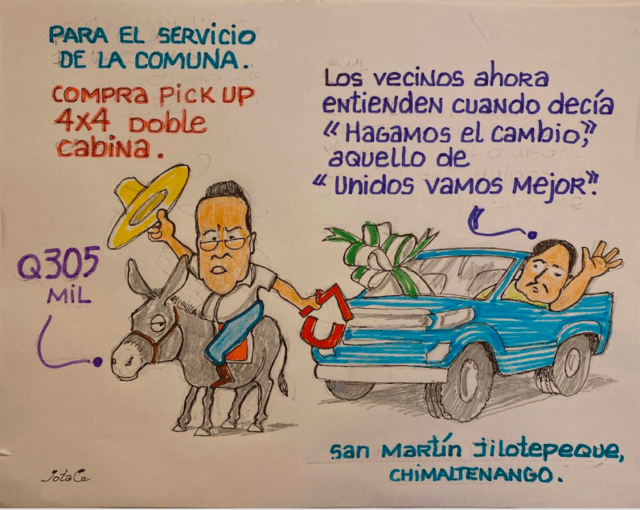 PARA EL SERVICIO
DE LA COMUNA.
COMPRA PICK UP
4x4 DOBLE
CABINA.
LOS VECINOS AHORA
ENTIENDEN CUANDO DECÍA
“HAGAMOS EL CAMBIO,”
AQUELLO DE
“UNIDOS VAMOS MEJOR”.
Q305
MIL
SAN MARTÍN JILOTEPEQUE,
CHIMALTENANGO.
JotaCe